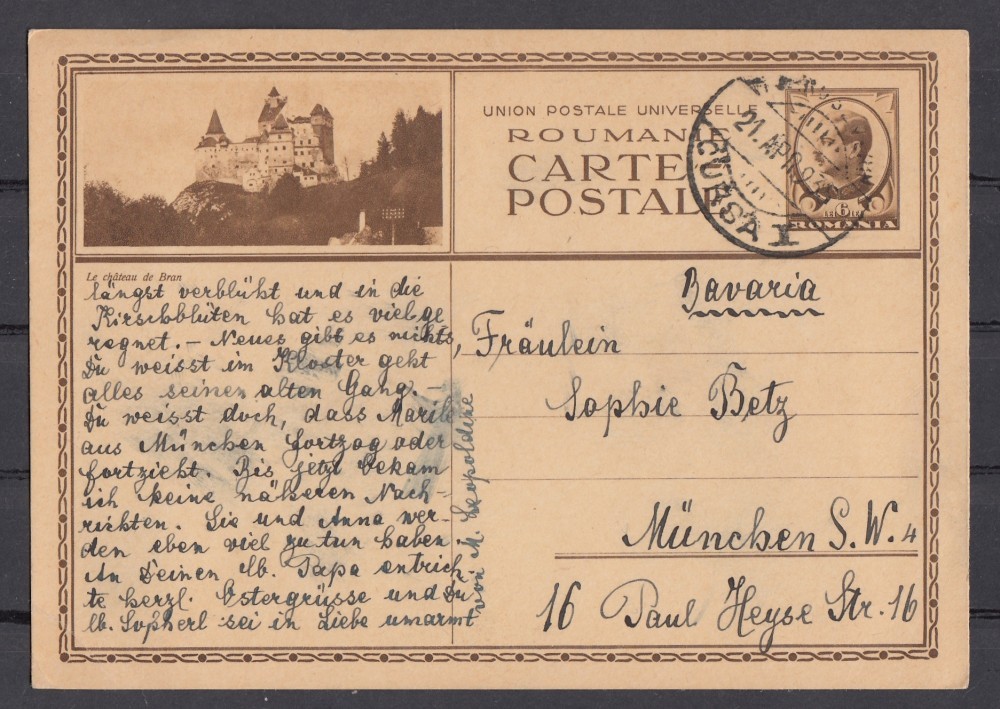 UNION POSTALE UNIVERSELLE
ROUMANIE
CARTE
POSTALE
21. APR. 93
CURSA I
6
ROMANIA
Le château de Bran
längst verblüht und in die
Kirschblüten hat es viel ge
regnet. — Neues gibt es nichts,
Du weisst im Kloster geht
alles seinen alten Gang. —
Du weisst doch, dass Marile
aus München fortzog oder
fortzieht. Bis jetzt bekam
ich keine näheren Nach-
richten. Sie und Anna wer-
den eben viel zu tun haben.
An Deinen lb. Papa entrich-
te herzl. Ostergrüsse und Du
lb. Sopherl sei in Liebe umarmt
von M. Leopoldine
Bavaria
Fräulein
Sophie Betz
München S.W. 4
16 Paul Heyse Str. 16